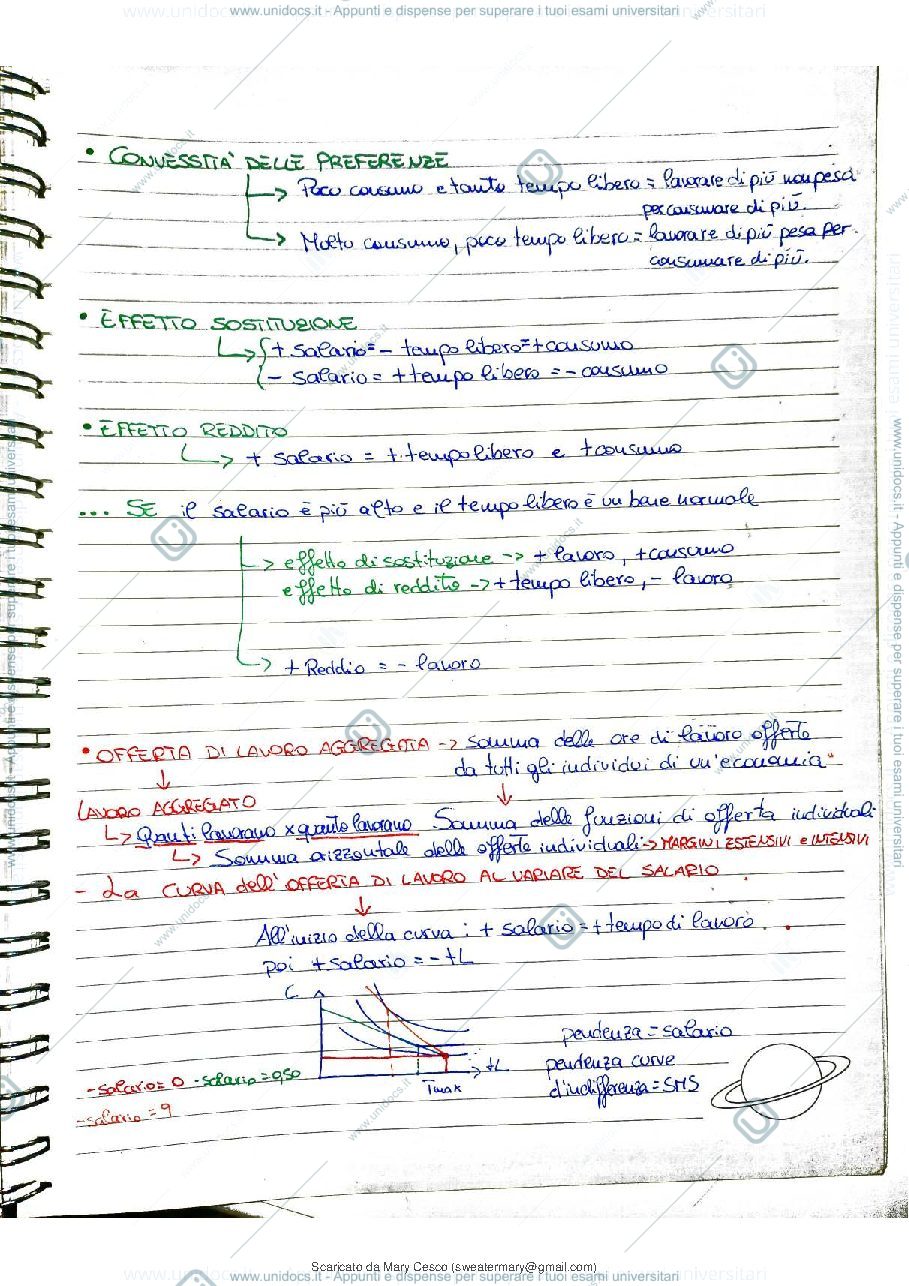 www.unidocs.it - Appunti e dispense per superare i tuoi esami universitari
• CONVESSITA' DELLE PREFERENZE
Poco consumo e tanto tempo libero = lavorare di più non pesa
per consumare di più.
Molto consumo, poco tempo libero = lavorare di più pesa per
consumare di più.
• EFFETTO SOSTITUZIONE
+ salario = - tempo libero = + consumo
- salario = + tempo libero = - consumo
• EFFETTO REDDITO
+ salario = + tempo libero e + consumo
... SE il salario è più alto e il tempo libero è un bene normale
effetto di sostituzione -> + lavoro, + consumo
effetto di reddito -> + tempo libero, - lavoro
+ Reddio = - lavoro
• OFFERTA DI LAVORO AGGREGATA -> somma delle ore di lavoro offerte
da tutti gli individui di un'economia"
LAVORO AGGREGATO
Quanti lavorano x quanto lavorano Somma delle funzioni di offerta individuali
Somma orizzontale delle offerte individuali -> MARGINI ESTENSIVI e INTENSIVI
- La CURVA dell'OFFERTA DI LAVORO AL VARIARE DEL SALARIO
All'inizio della curva : + salario = + tempo di lavoro.
poi + salario = - tL
C
pendenza = salario
tL
pendenza curve
- salario = 0 - salario = 0,50
Tmax
d'indifferenza = SMS
- salario = 9
Scaricato da Mary Cesco (sweatermary@gmail.com)
www.unidocs.it - Appunti e dispense per superare i tuoi esami universitari